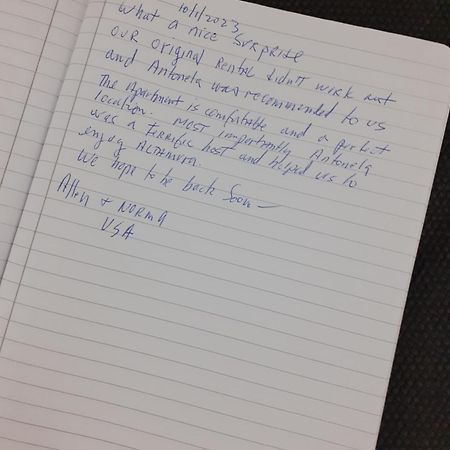 10/1/2023
What a nice surprise
OUR ORIGINAL Rental didn't work out
and Antonela was recommended to us
The apartment is comfortable and a perfect
location. Most importantly Antonela
was a terrific host and helped us to
enjoy ALTAMURA.
We hope to be back soon —
Allen + NORMA
USA